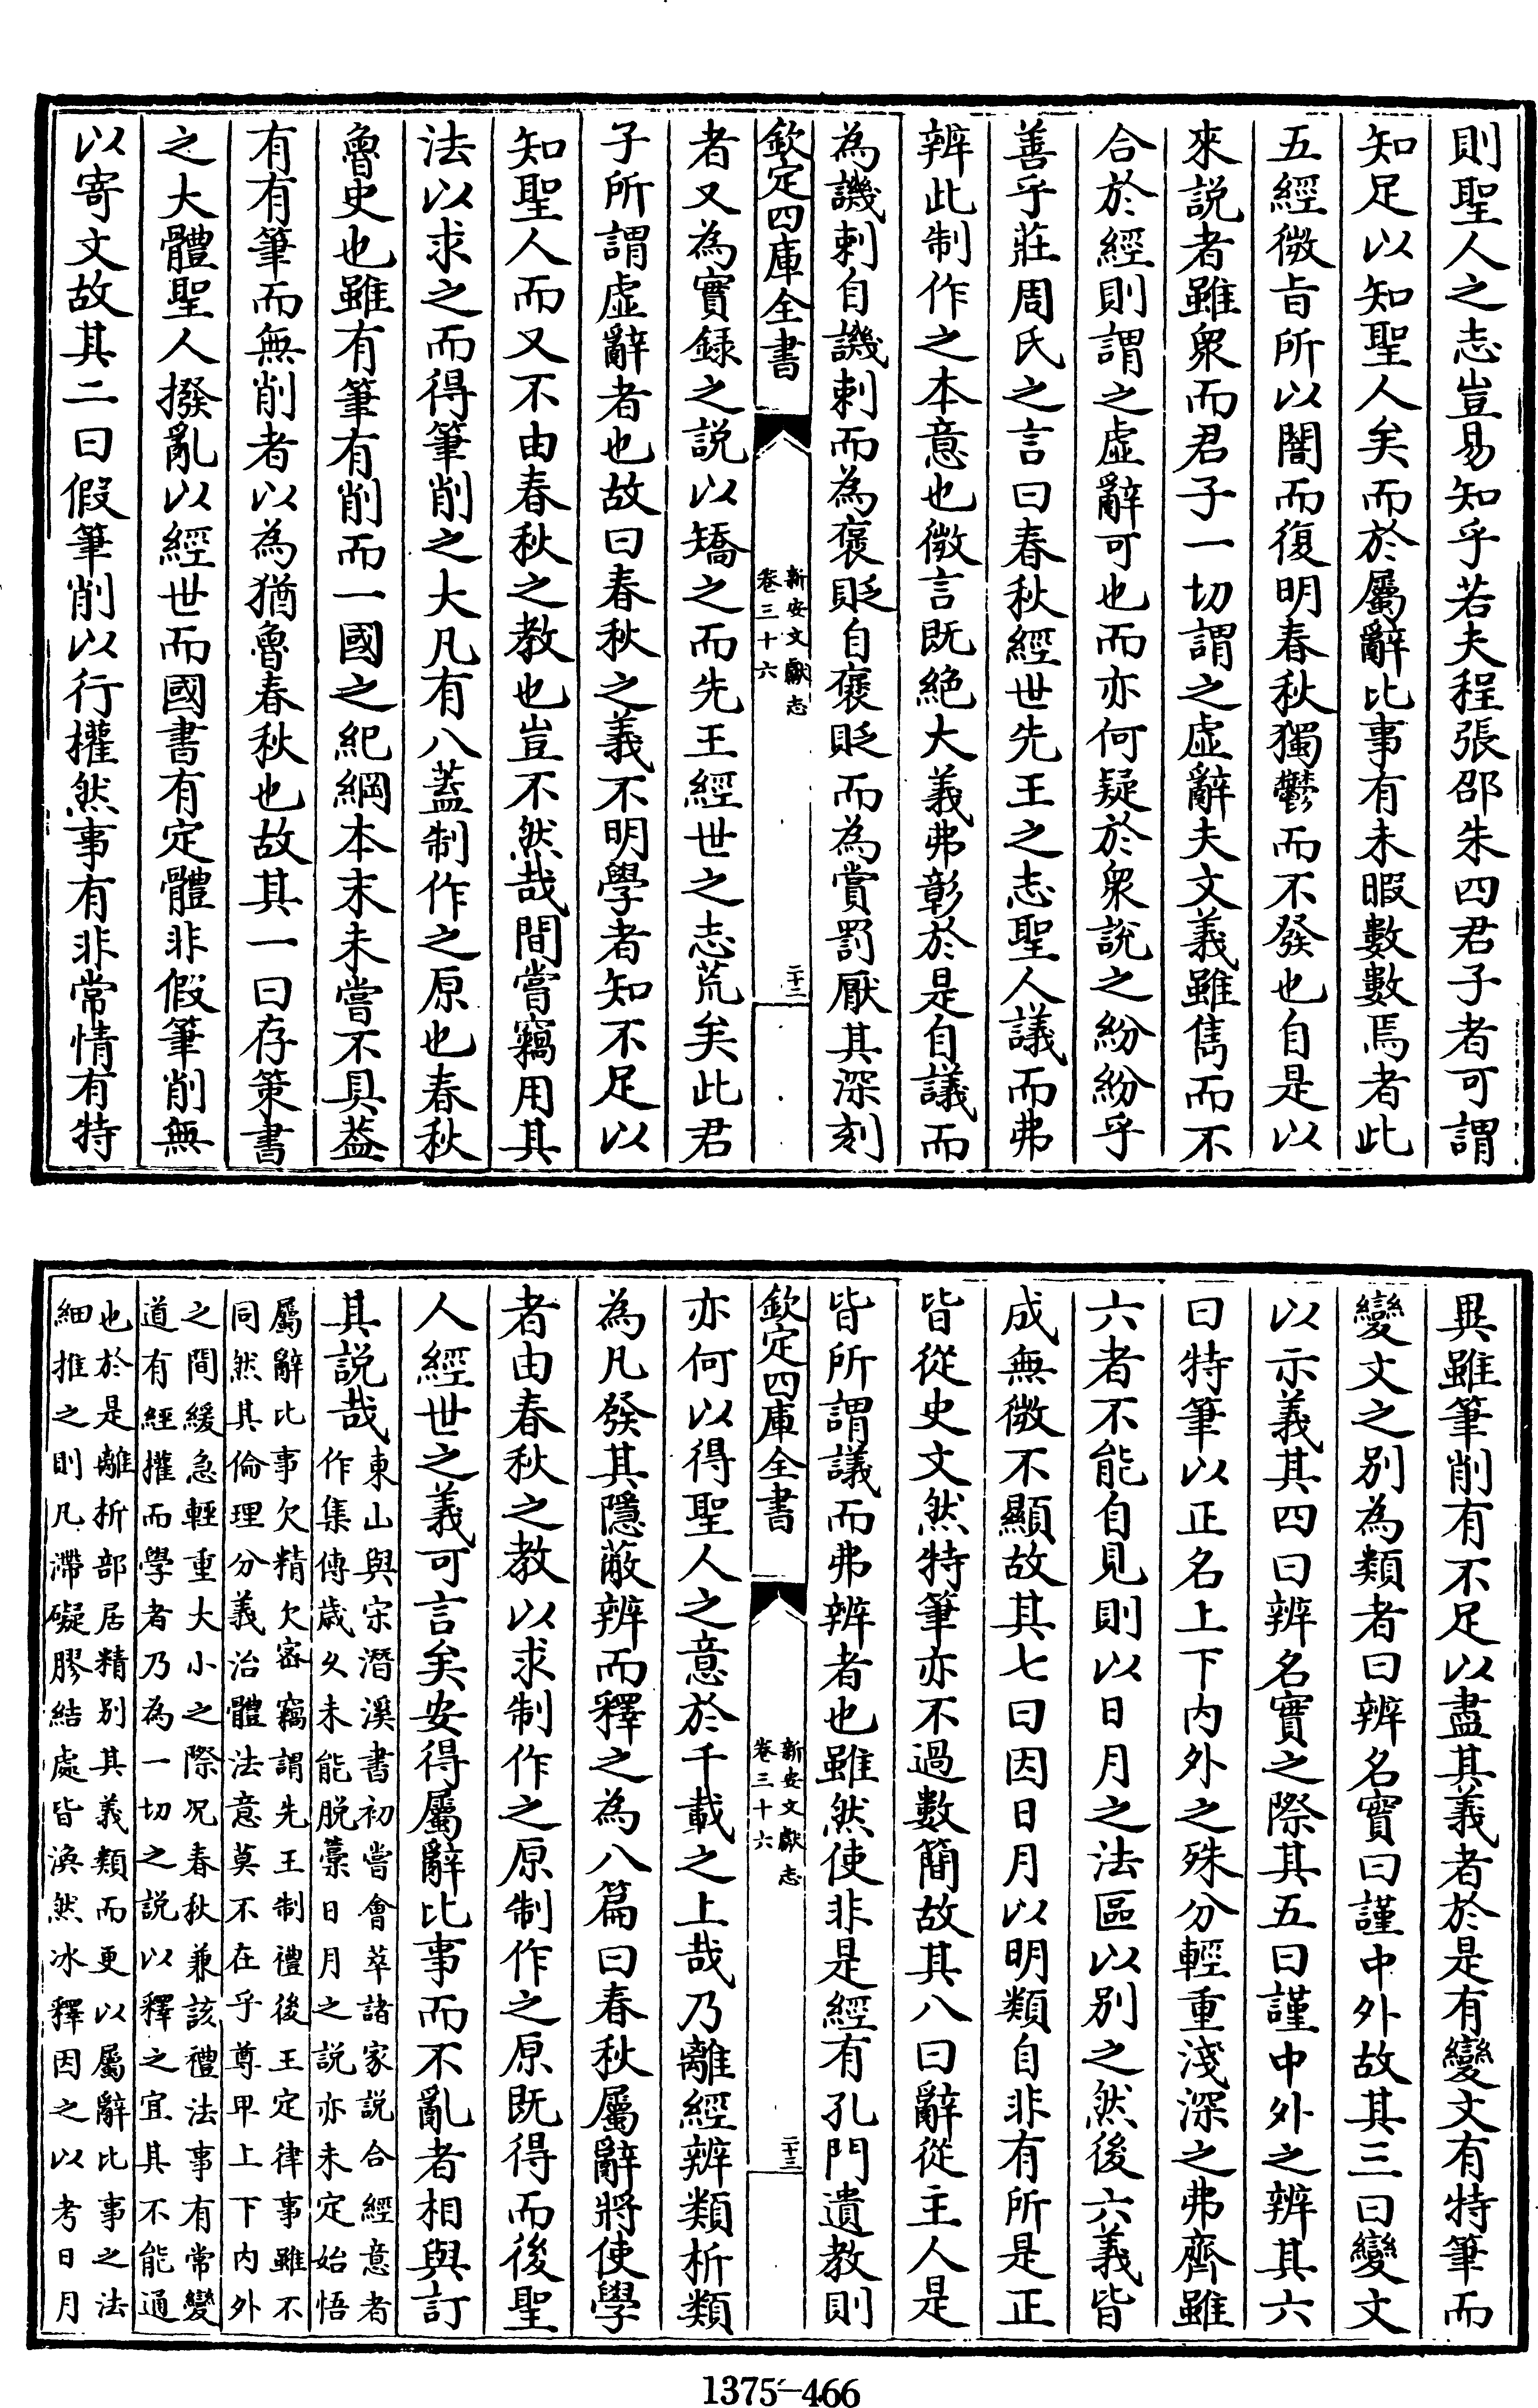 則聖人之志豈易知乎若夫程張邵朱四君子者可謂
知足以知聖人矣而於屬辭比事有未暇數數焉者此
五經微旨所以闇而復明春秋獨鬱而不發也自是以
來説者雖衆而君子一切謂之虚辭夫文義雖雋而不
合於經則謂之虚辭可也而亦何疑於衆説之紛紛乎
善乎莊周氏之言曰春秋經世先王之志聖人議而弗
辨此制作之本意也微言既絶大義弗彰於是自議而
為譏刺自譏刺而為褒貶自褒貶而為賞罰厭其深刻
欽定四庫全書
新安文獻志
卷三十六
二十二
者又為實録之説以矯之而先王經世之志荒矣此君
子所謂虚辭者也故曰春秋之義不明學者知不足以
知聖人而又不由春秋之教也豈不然哉間嘗竊用其
法以求之而得筆削之大凡有八蓋制作之原也春秋
魯史也雖有筆有削而一國之紀綱本末未嘗不具蓋
有有筆而無削者以為猶魯春秋也故其一曰存策書
之大體聖人撥亂以經世而國書有定體非假筆削無
以寄文故其二曰假筆削以行權然事有非常情有特
異雖筆削有不足以盡其義者於是有變文有特筆而
變文之别為類者曰辨名實曰謹中外故其三曰變文
以示義其四曰辨名實之際其五曰謹中外之辨其六
曰特筆以正名上下内外之殊分輕重淺深之弗齊雖
六者不能自見則以日月之法區以别之然後六義皆
成無微不顯故其七曰因日月以明類自非有所是正
皆從史文然特筆亦不過數簡故其八曰辭從主人是
皆所謂議而弗辨者也雖然使非是經有孔門遺教則
欽定四庫全書
新安文獻志
卷三十六
二十三
亦何以得聖人之意於千載之上哉乃離經辨類析類
為凡發其隱蔽辨而釋之為八篇曰春秋屬辭將使學
者由春秋之教以求制作之原制作之原既得而後聖
人經世之義可言矣安得屬辭比事而不亂者相與訂
其説哉
東山與宋潛溪書初嘗會萃諸家説合經意者
作集傳歳久未能脱藁日月之説亦未定始悟
屬辭比事欠精欠密竊謂先王制禮後王定律事雖不
同然其倫理分義治體法意莫不在乎尊卑上下内外
之間緩急輕重大小之際况春秋兼該禮法事有常變
道有經權而學者乃為一切之説以釋之宜其不能通
也於是離析部居精别其義類而更以屬辭比事之法
細推之則凡滯礙膠結處皆渙然冰釋因之以考日月
1375-466